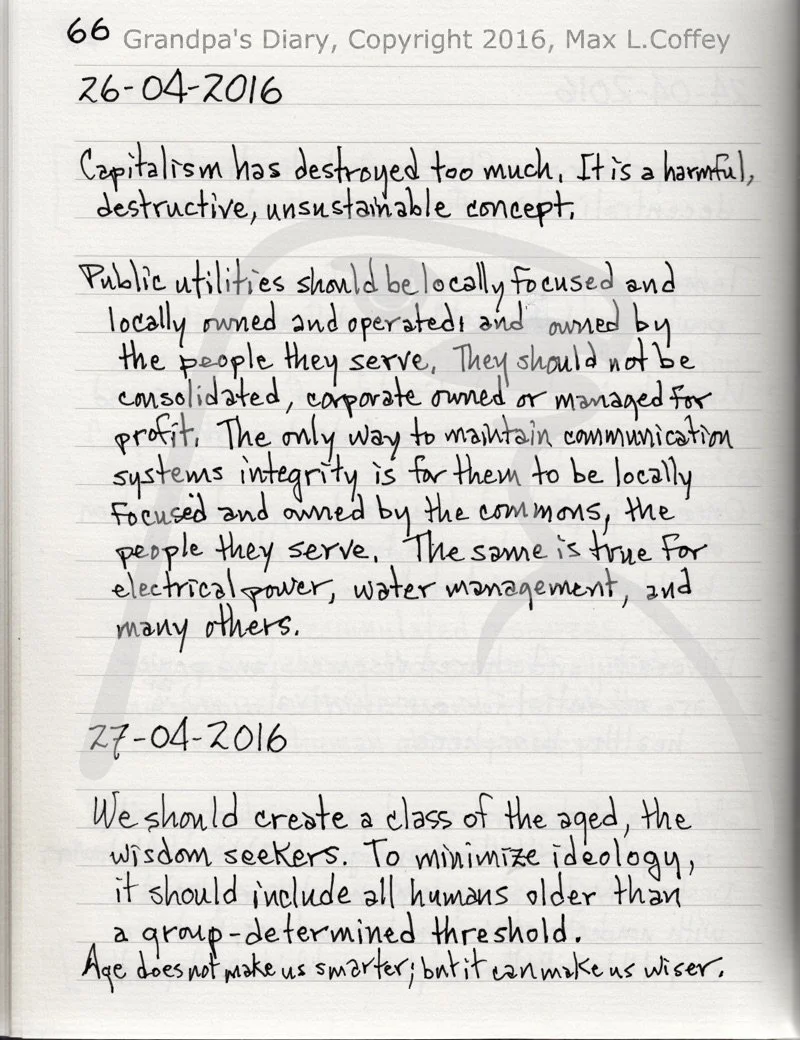 66 Grandpa's Diary, Copyright 2016, Max L.Coffey
26-04-2016
Capitalism has destroyed too much. It is a harmful,
destructive, unsustainable concept.
Public utilities should be locally focused and
locally owned and operated; and owned by
the people they serve. They should not be
consolidated, corporate owned or managed for
profit. The only way to maintain communication
systems integrity is for them to be locally
focused and owned by the commons, the
people they serve. The same is true for
electrical power, water management, and
many others.
27-04-2016
We should create a class of the aged, the
wisdom seekers. To minimize ideology,
it should include all humans older than
a group-determined threshold.
Age does not make us smarter; but it can make us wiser.